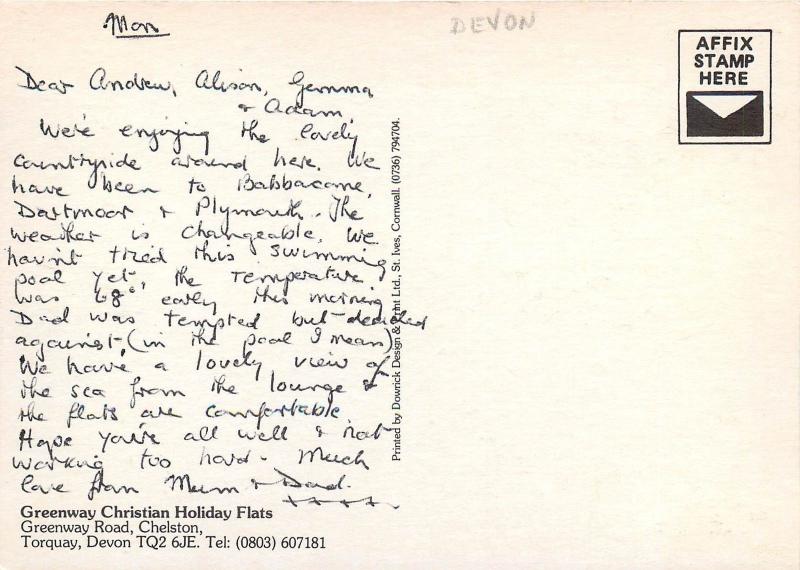 Mon
DEVON
AFFIX
STAMP
HERE
Dear Andrew, Alison, Gemma
& Adam,
We're enjoying the lovely
countryside around here. We
have been to Babbacome,
Dartmoor & Plymouth. The
weather is changeable. We
havn't tried this swimming
pool yet, the temperature
was 68° early this morning
Dad was tempted but decided
against (in the pool I mean)
We have a lovely view of
the sea from the lounge &
the flats are comfortable
Hope you're all well & not
working too hard. Much
love from Mum & Dad.
xxxx
Greenway Christian Holiday Flats
Greenway Road, Chelston,
Torquay, Devon TQ2 6JE. Tel: (0803) 607181
Printed by Dowrick Design & Print Ltd., St. Ives, Cornwall. (0736) 794704.